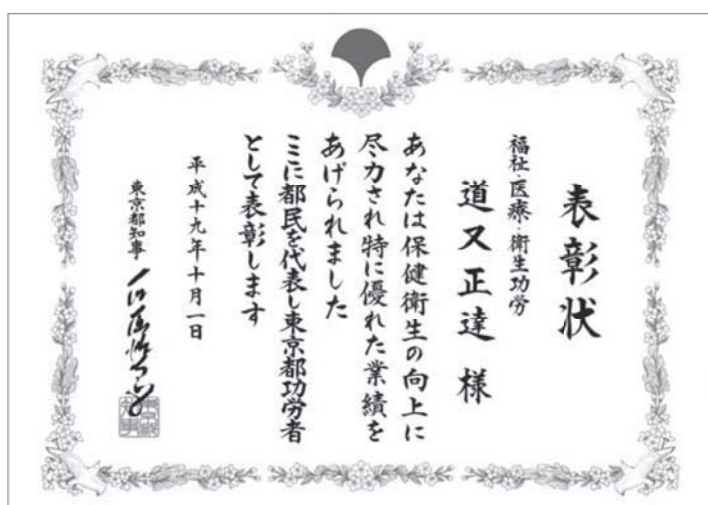 表彰状
福祉・医療・衛生功労
道又正達 様
あなたは保健衛生の向上に
尽力され特に優れた業績を
あげられました
ここに都民を代表し東京都功労者
として表彰します
平成十九年十月一日
東京都知事